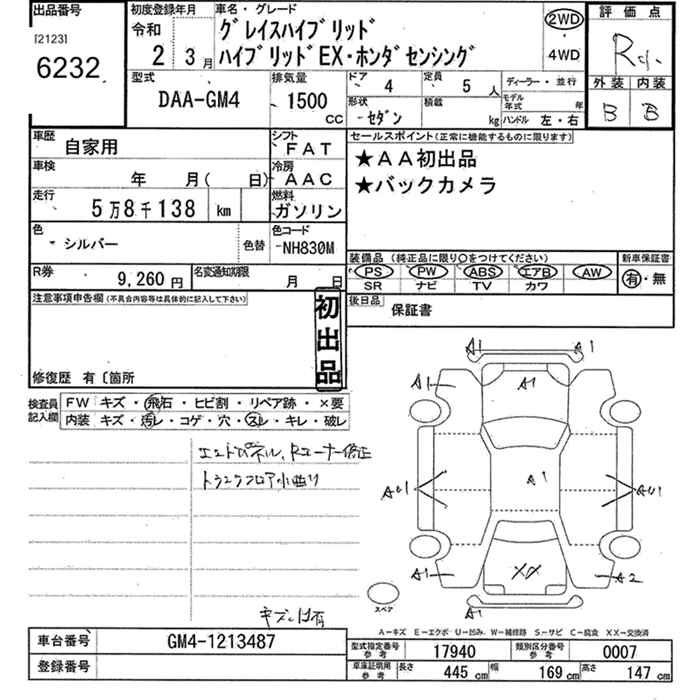 出品番号
[2123]
6232
初度登録年月
令和
2 3月
車名・グレード
グレイスハイブリッド
ハイブリッドEX・ホンダセンシング
2WD
4WD
評価点
外装 内装
B B
型式
DAA-GM4
排気量
1500
CC
ドア 4
定員 5 人
形状
セダン
積載 kg
ディーラー・並行
モデル年式 年
ハンドル 左・右
車歴
自家用
シフト
FAT
車検
年 月( 日)
冷房
AAC
走行
5万8千138 km
燃料
ガソリン
色
シルバー
色替
色コード
NH830M
R券
9,260 円
名変通知期限
月 日
セールスポイント(正常に機能するものに限ります)
★AA初出品
★バックカメラ
装備品(純正品に限り○をつけてください)
PS PW ABS エアB AW
SR ナビ TV カワ
新車保証書
有・無
後日品
保証書
注意事項申告欄(不具合内容等は具体的に記入して下さい)
初出品
修復歴 有〔箇所
検査員記入欄
FW キズ・飛石・ヒビ割・リペア跡・×要
内装 キズ・汚レ・コゲ・穴・スレ・キレ・破レ
エンドパネル、Rコーナー修正
トランクフロア小曲り
キズ、凹有
A1 A1
A1 A1
A1
AU1 AU1
XX
A1 A2
A1
スペア
A−キズ E−エクボ U−凹み W−補修跡 S−サビ C−腐食 XX−交換済
車台番号
GM4-1213487
登録番号
型式指定番号 参考
17940
類別区分番号 参考
0007
車庫証明用 参考
長さ 445 cm
幅 169 cm
高さ 147 cm